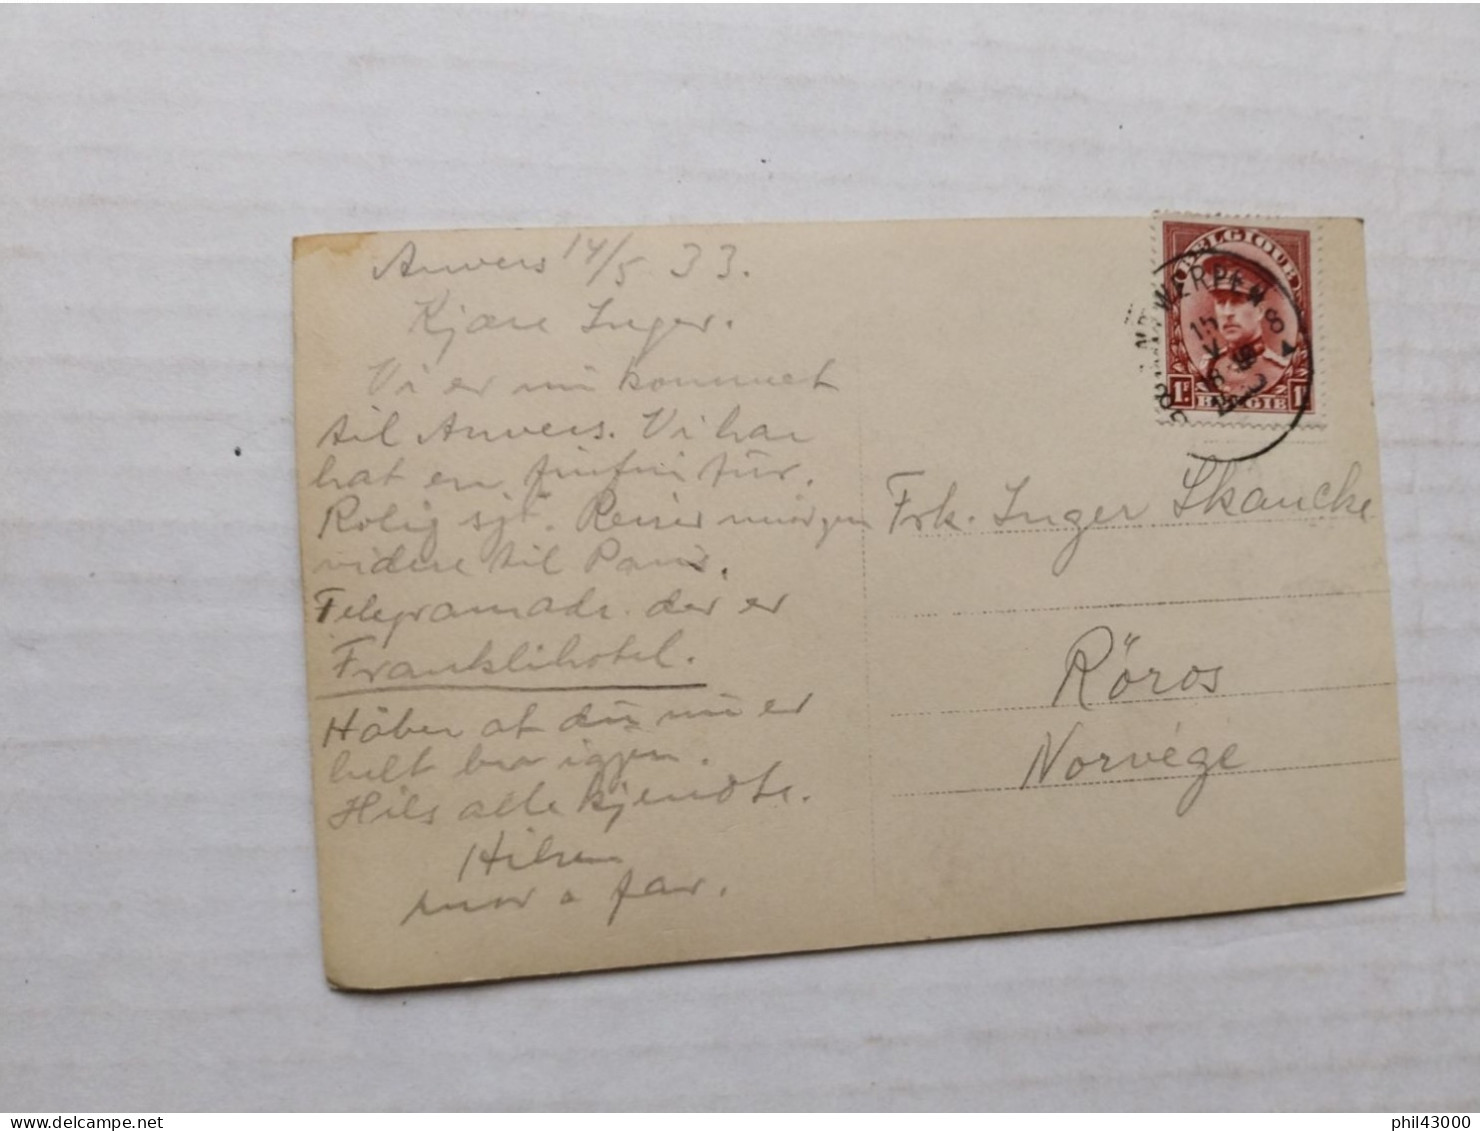 Anvers 14/5 33.
Kjære Inger.
Vi er nu kommet
til Anvers. Vi har
hat en finfin tur.
Rolig sjø. Reiser morgen
videre til Paris.
Telegramadr. der er
Franklihotel.
Håber at du nu er
helt bra igjen.
Hils alle kjendte.
Hilsen
mor o far.
BELGIQUE
1F 1F
BELGIË
ANTWERPEN 8
15
V
Frk. Inger Skancke
Röros
Norvége
phil43000